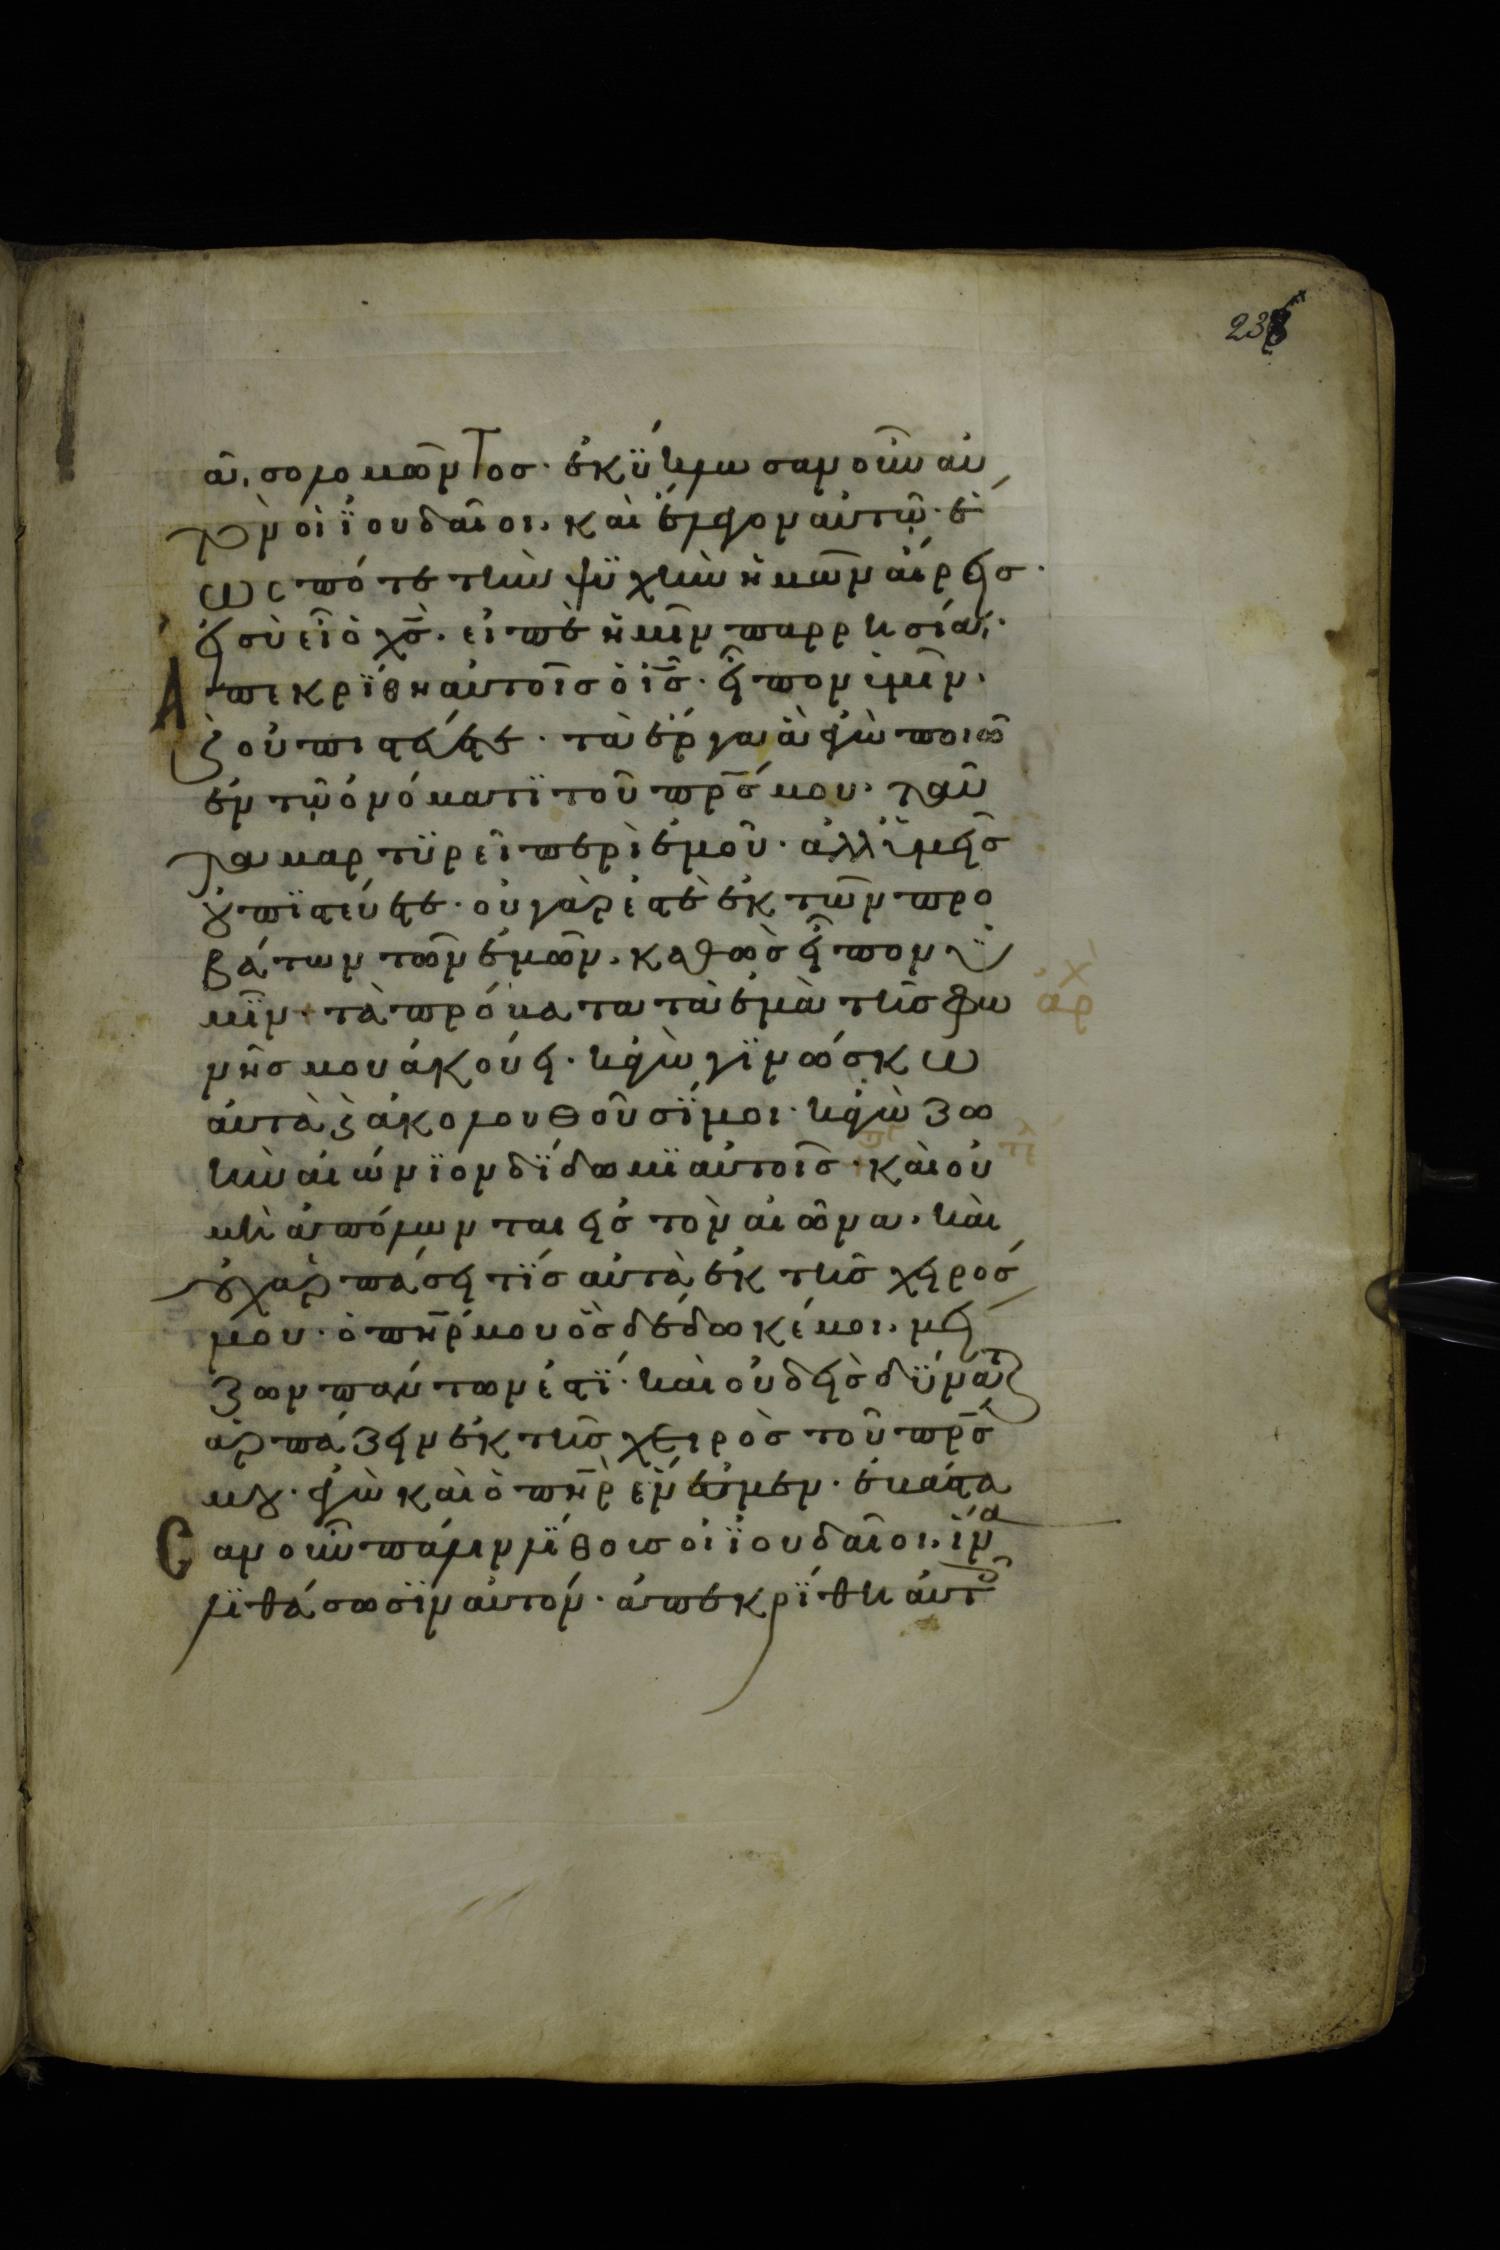 238
ᾶ, σολομῶντος· ἐκύκλωσαν οὖν αὐ
τὸν οἱ ϊουδαῖοι, καὶ ἔλεγον αὐτῷ· ἕ
ως πότε τὴν ψϋχὴν ἡμῶν αἴρεις·
εἰ σὺ εἶ ὁ χς̄· εἰπὲ ἡμῖν παρρησίᾳ·
Απεκρίθη αὐτοῖς ὁ ις̄· εἶπον ὑμῖν·
καὶ οὐ πιστεύετε· τὰ ἔργα ἃ ἐγὼ ποιῶ
ἐν τῷ ὀνόματϊ τοῦ πρς̄ μου· ταῦ
τα μαρτϋρεῖ περὶ ἐμοῦ· ἀλλ ὑμεῖς
οὐ πϊστεύετε· οὐ γὰρ ἐστὲ ἐκ τῶν προ
βάτων τῶν ἐμῶν, καθὼς εἶπον ὑ
μῖν· τὰ πρόβατα τὰ ἐμὰ τῆς φω
χ
ἀρ
νῆς μου ἀκούει· κἀγὼ γϊνώσκω
αὐτὰ καὶ ἀκολουθοῦσϊ μοι· κἀγὼ ζω
ὴν αἰώνϊον δϊδωμϊ αὐτοῖς· καὶ οὐ
μὴ ἀπόλωνται εἰς τὸν αἰῶνα· καὶ
οὐχ ἁρπάσει τϊς αὐτὰ ἐκ τῆς χειρός
μου· ὁ πη̄ρ μου ὃς δέδωκέ μοι, μεί
ζων πάντων ἐστϊ· καὶ οὐδεὶς δύναται
ἁρπάζειν ἐκ τῆς χειρὸς τοῦ πρς̄
μου· ἐγὼ καὶ ὁ πη̄ρ ἕν ἐσμεν· ἐβάστα
Cαν οὖν πάλιν λίθους οἱ ϊουδαῖοι, ἵνα
λϊθάσωσϊν αὐτόν· ἀπεκρίθη αὐτοῖς